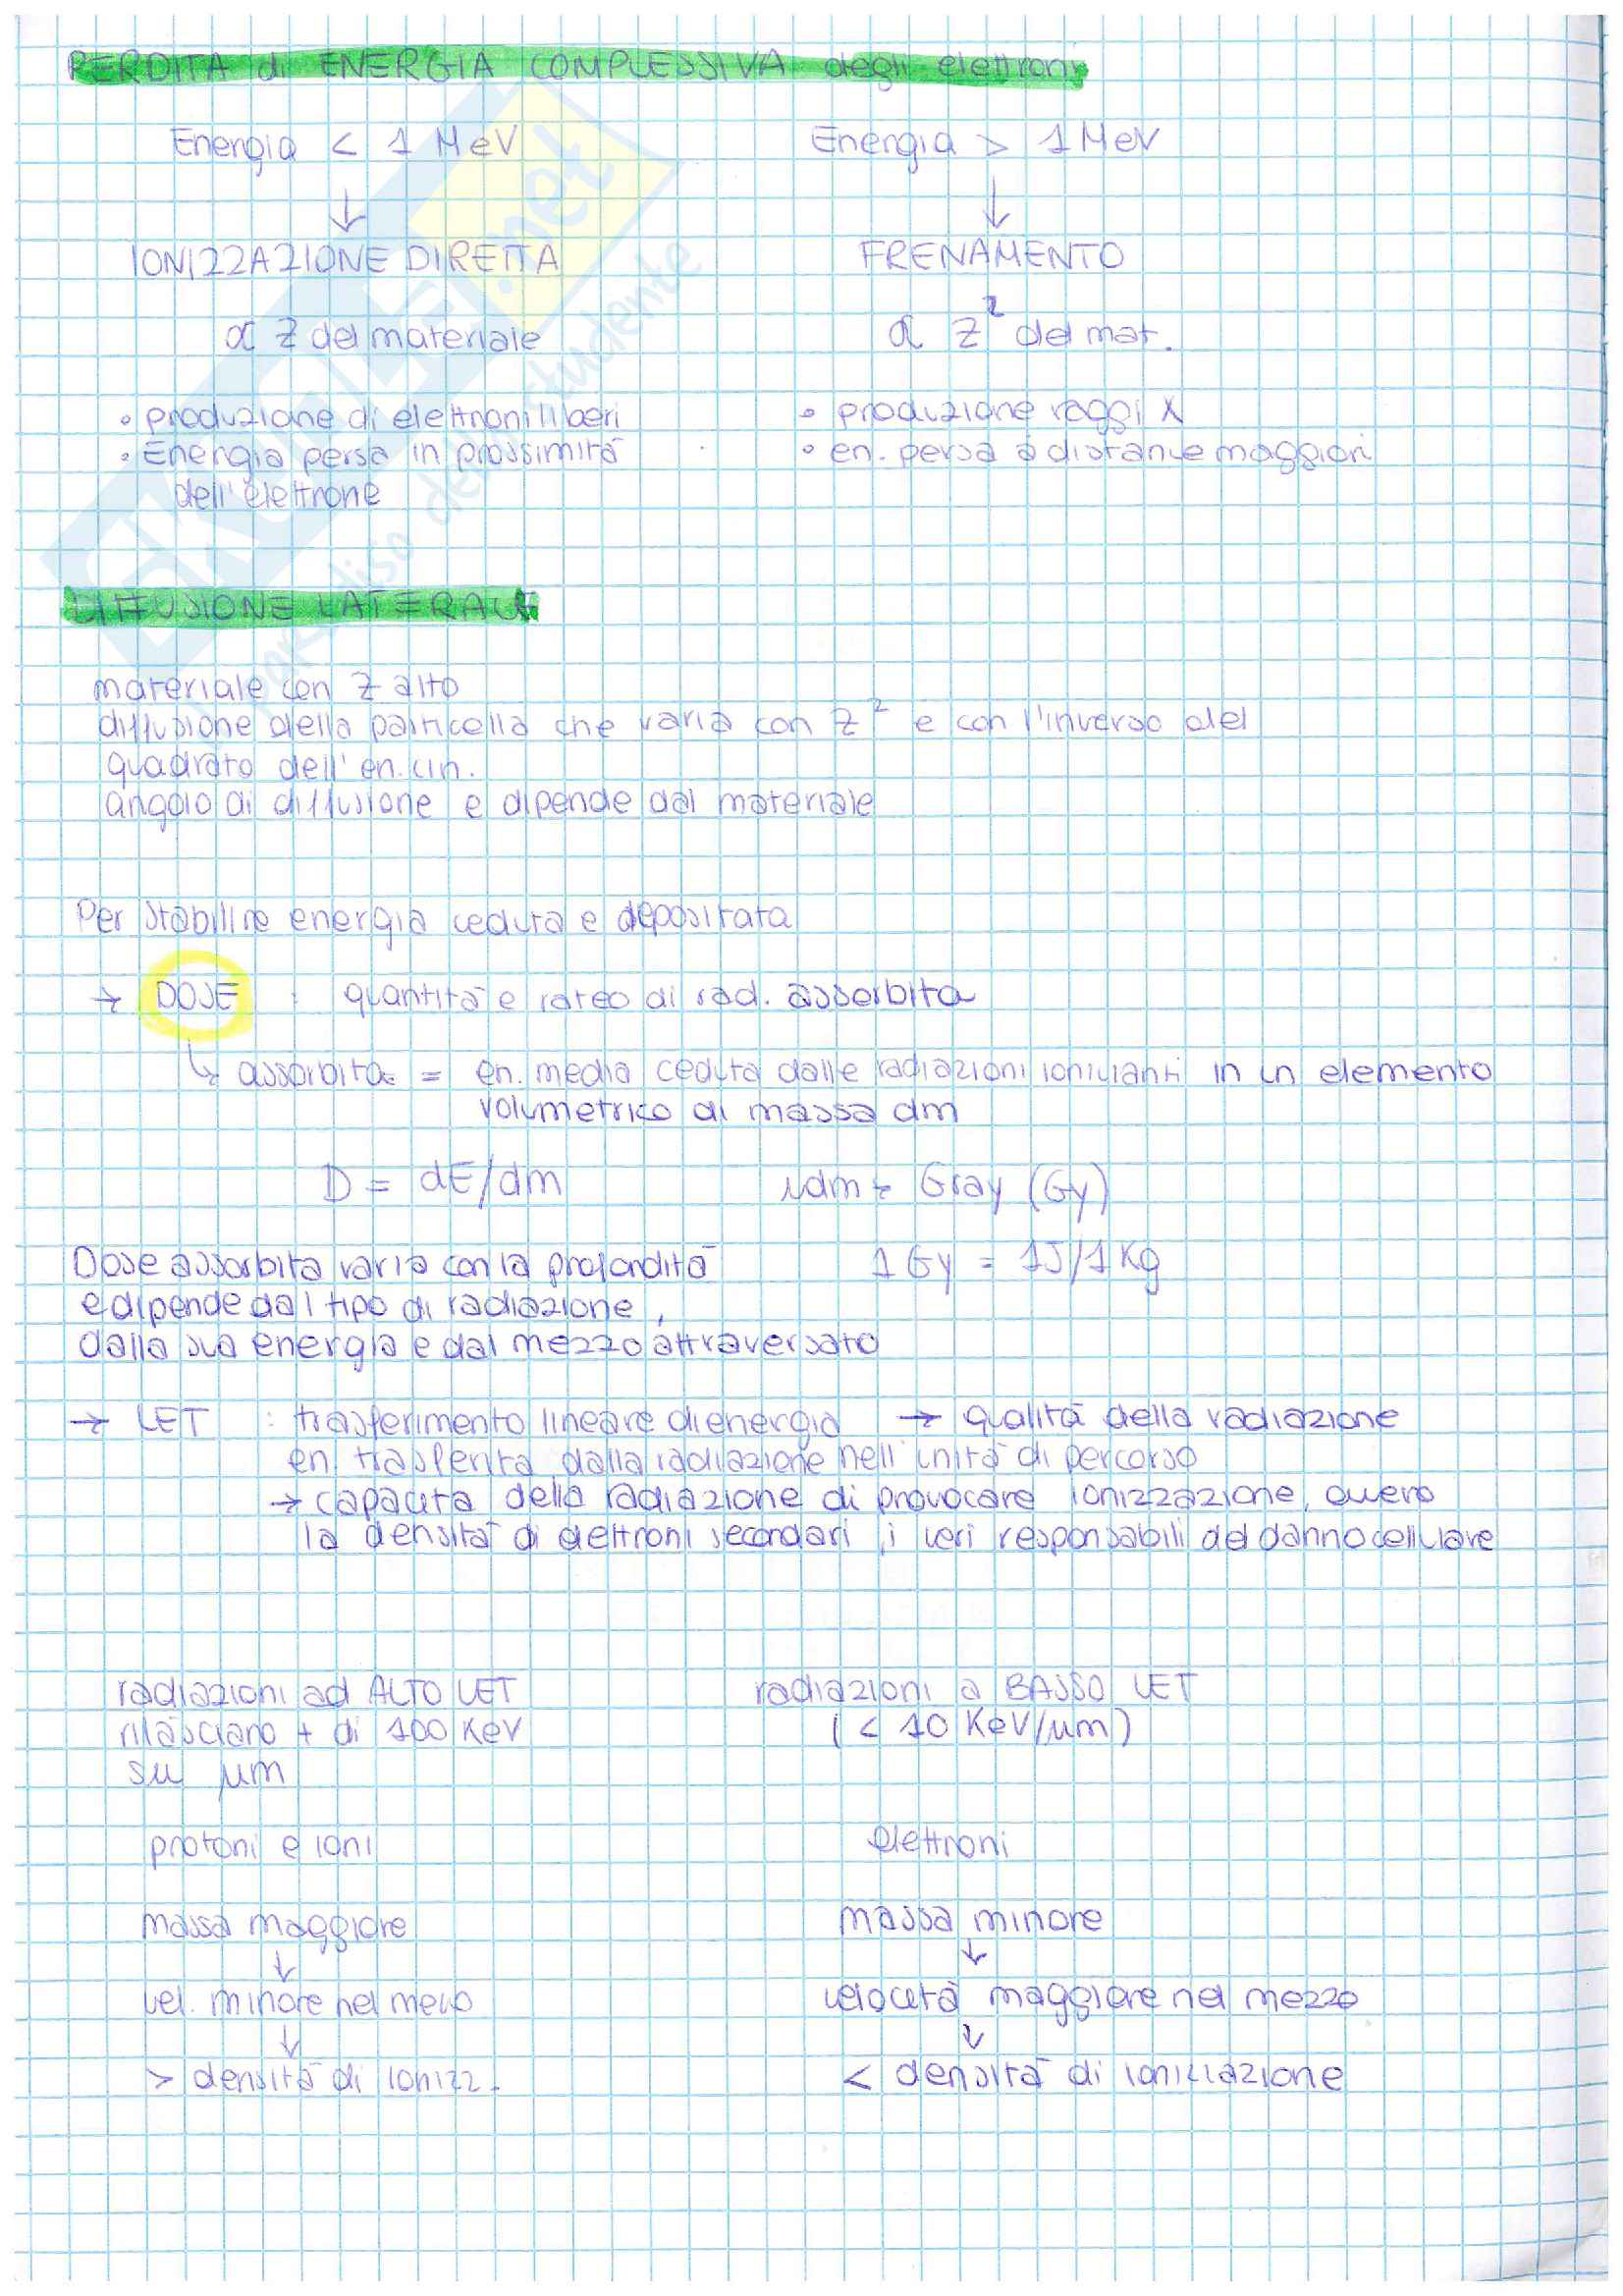 PERDITA di ENERGIA COMPLESSIVA degli elettroni
Energia < 1 MeV
Energia > 1 MeV
↓
↓
IONIZZAZIONE DIRETTA
FRENAMENTO
α Z del materiale
α Z² del mat.
• produzione di elettroni liberi
• produzione raggi X
• Energia persa in prossimità
• en. persa a distanze maggiori
dell'elettrone
DIFFUSIONE LATERALE
materiale con Z alto
diffusione della particella che varia con Z² e con l'inverso del
quadrato dell'en. cin.
angolo di diffusione e dipende dal materiale
Per stabilire energia ceduta e depositata
→ DOSE : quantità e rateo di rad. assorbita
↳ assorbita = en. media ceduta dalle radiazioni ionizzanti in un elemento
volumetrico di massa dm
D = dE/dm
udm: Gray (Gy)
Dose assorbita varia con la profondità
1 Gy = 1J/1Kg
e dipende dal tipo di radiazione,
dalla sua energia e dal mezzo attraversato
→ LET : trasferimento lineare di energia → qualità della radiazione
en. trasferita dalla radiazione nell'unità di percorso
→ capacità della radiazione di provocare ionizzazione, ovvero
la densità di elettroni secondari, i veri responsabili del danno cellulare
radiazioni ad ALTO LET
radiazioni a BASSO LET
rilasciano + di 100 KeV
(< 10 KeV/μm)
su μm
protoni e ioni
elettroni
massa maggiore
massa minore
↓
↓
vel. minore nel mezzo
velocità maggiore nel mezzo
↓
↓
> densità di ionizz.
< densità di ionizzazione
SKUOLA.net
il paradiso dello studente